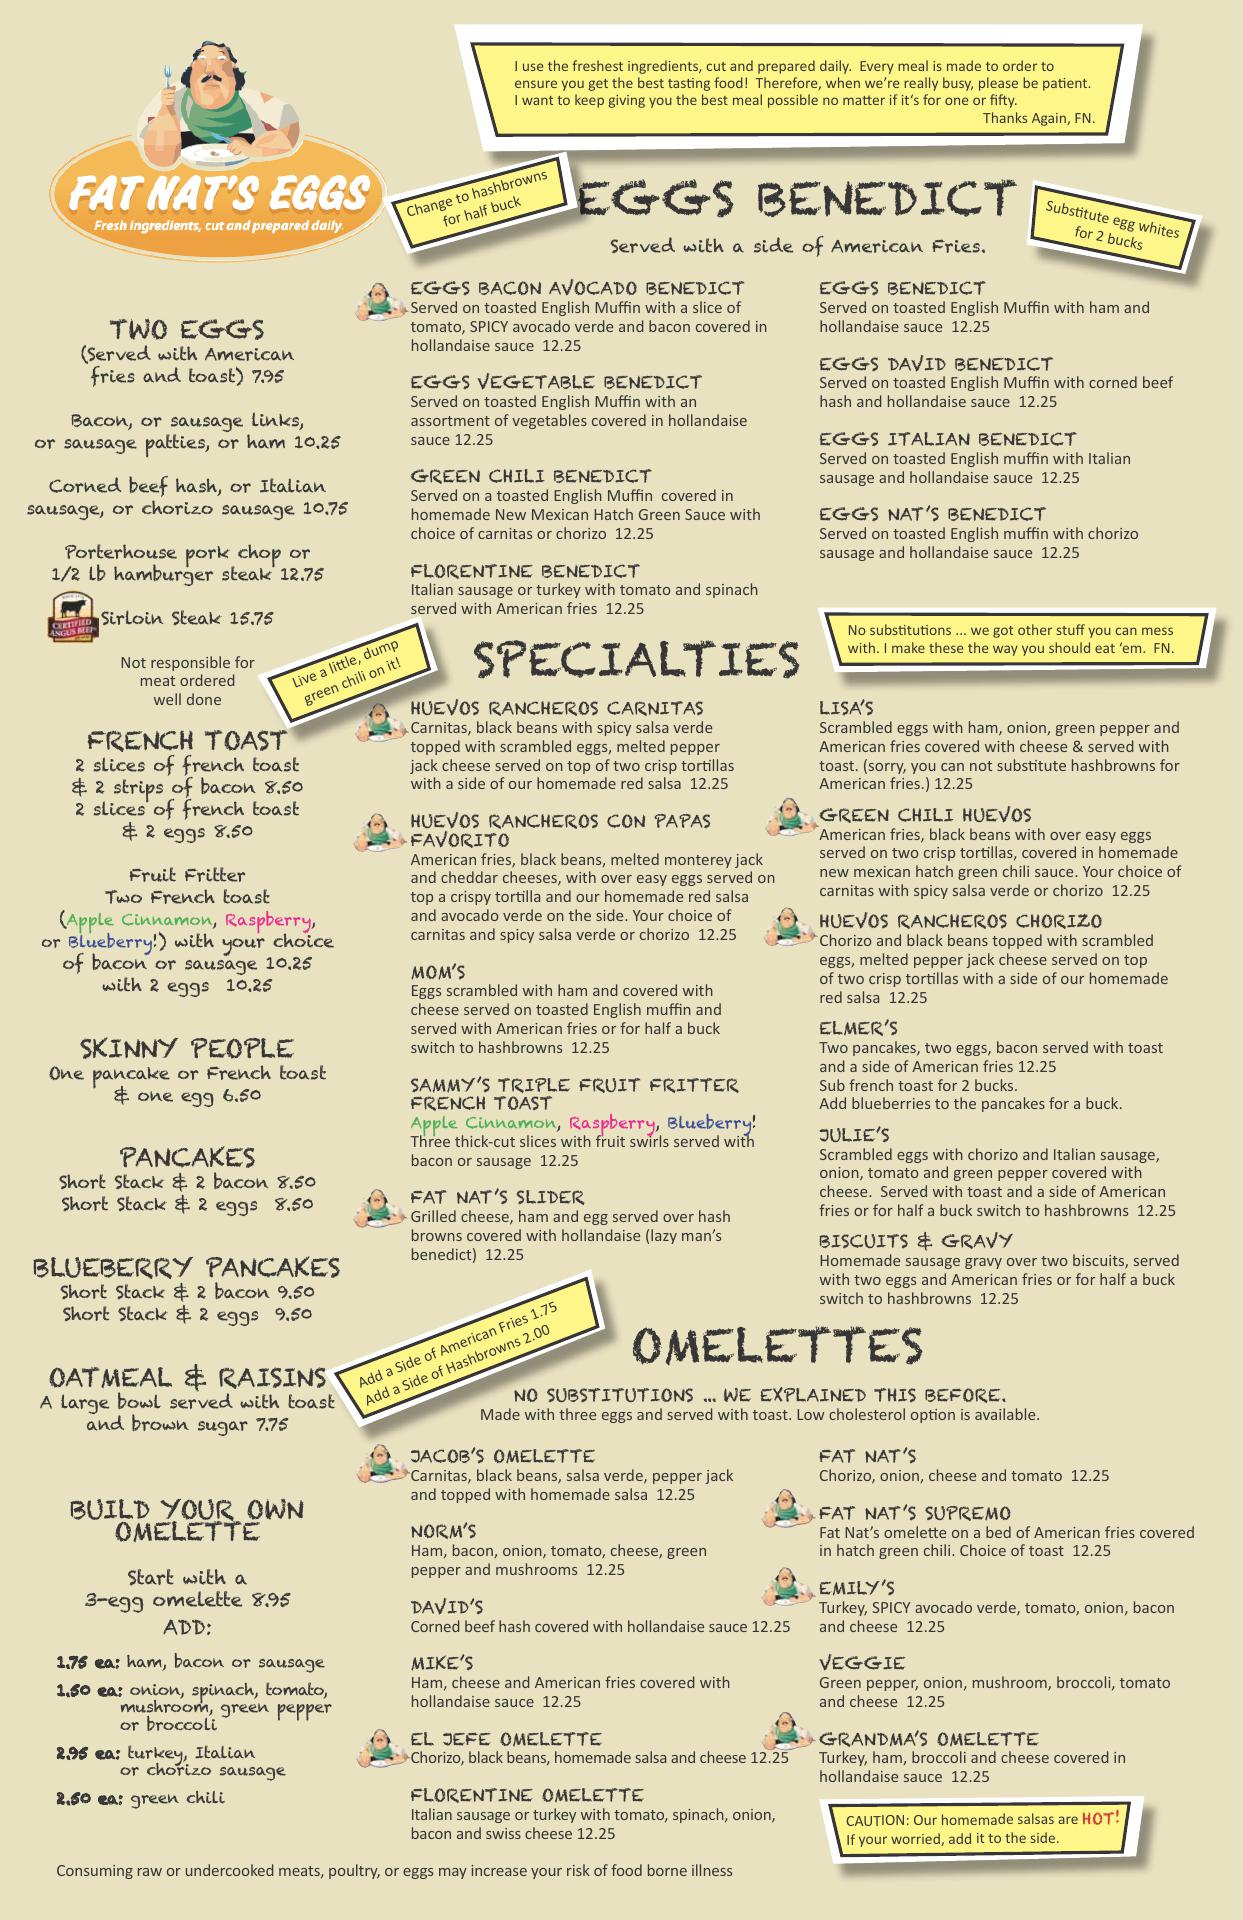 I use the freshest ingredients, cut and prepared daily.  Every meal is made to order to
ensure you get the best tasting food!  Therefore, when we're really busy, please be patient.
I want to keep giving you the best meal possible no matter if it's for one or fifty.
Thanks Again, FN.
FAT NAT'S EGGS
Fresh ingredients, cut and prepared daily.
TWO EGGS
(Served with American
fries and toast) 7.95
Bacon, or sausage links,
or sausage patties, or ham 10.25
Corned beef hash, or Italian
sausage, or chorizo sausage 10.75
Porterhouse pork chop or
1/2 lb hamburger steak 12.75
CERTIFIED
ANGUS BEEF
Sirloin Steak 15.75
Not responsible for
meat ordered
well done
FRENCH TOAST
2 slices of french toast
& 2 strips of bacon 8.50
2 slices of french toast
& 2 eggs 8.50
Fruit Fritter
Two French toast
(Apple Cinnamon, Raspberry,
or Blueberry!) with your choice
of bacon or sausage 10.25
with 2 eggs  10.25
SKINNY PEOPLE
One pancake or French toast
& one egg 6.50
PANCAKES
Short Stack & 2 bacon 8.50
Short Stack & 2 eggs  8.50
BLUEBERRY PANCAKES
Short Stack & 2 bacon 9.50
Short Stack & 2 eggs  9.50
OATMEAL & RAISINS
A large bowl served with toast
and brown sugar 7.75
BUILD YOUR OWN
OMELETTE
Start with a
3-egg omelette 8.95
ADD:
1.75 ea: ham, bacon or sausage
1.50 ea: onion, spinach, tomato,
mushroom, green pepper
or broccoli
2.95 ea: turkey, Italian
or chorizo sausage
2.50 ea: green chili
Change to hashbrowns
for half buck
EGGS BENEDICT
Served with a side of American Fries.
Substitute egg whites
for 2 bucks
EGGS BACON AVOCADO BENEDICT
Served on toasted English Muffin with a slice of
tomato, SPICY avocado verde and bacon covered in
hollandaise sauce  12.25
EGGS VEGETABLE BENEDICT
Served on toasted English Muffin with an
assortment of vegetables covered in hollandaise
sauce 12.25
GREEN CHILI BENEDICT
Served on a toasted English Muffin  covered in
homemade New Mexican Hatch Green Sauce with
choice of carnitas or chorizo  12.25
FLORENTINE BENEDICT
Italian sausage or turkey with tomato and spinach
served with American fries  12.25
EGGS BENEDICT
Served on toasted English Muffin with ham and
hollandaise sauce  12.25
EGGS DAVID BENEDICT
Served on toasted English Muffin with corned beef
hash and hollandaise sauce  12.25
EGGS ITALIAN BENEDICT
Served on toasted English muffin with Italian
sausage and hollandaise sauce  12.25
EGGS NAT'S BENEDICT
Served on toasted English muffin with chorizo
sausage and hollandaise sauce  12.25
Live a little, dump
green chili on it!
SPECIALTIES
No substitutions ... we got other stuff you can mess
with. I make these the way you should eat 'em.  FN.
HUEVOS RANCHEROS CARNITAS
Carnitas, black beans with spicy salsa verde
topped with scrambled eggs, melted pepper
jack cheese served on top of two crisp tortillas
with a side of our homemade red salsa  12.25
HUEVOS RANCHEROS CON PAPAS
FAVORITO
American fries, black beans, melted monterey jack
and cheddar cheeses, with over easy eggs served on
top a crispy tortilla and our homemade red salsa
and avocado verde on the side. Your choice of
carnitas and spicy salsa verde or chorizo  12.25
MOM'S
Eggs scrambled with ham and covered with
cheese served on toasted English muffin and
served with American fries or for half a buck
switch to hashbrowns  12.25
SAMMY'S TRIPLE FRUIT FRITTER
FRENCH TOAST
Apple Cinnamon, Raspberry, Blueberry!
Three thick-cut slices with fruit swirls served with
bacon or sausage  12.25
FAT NAT'S SLIDER
Grilled cheese, ham and egg served over hash
browns covered with hollandaise (lazy man's
benedict)  12.25
LISA'S
Scrambled eggs with ham, onion, green pepper and
American fries covered with cheese & served with
toast. (sorry, you can not substitute hashbrowns for
American fries.) 12.25
GREEN CHILI HUEVOS
American fries, black beans with over easy eggs
served on two crisp tortillas, covered in homemade
new mexican hatch green chili sauce. Your choice of
carnitas with spicy salsa verde or chorizo  12.25
HUEVOS RANCHEROS CHORIZO
Chorizo and black beans topped with scrambled
eggs, melted pepper jack cheese served on top
of two crisp tortillas with a side of our homemade
red salsa  12.25
ELMER'S
Two pancakes, two eggs, bacon served with toast
and a side of American fries 12.25
Sub french toast for 2 bucks.
Add blueberries to the pancakes for a buck.
JULIE'S
Scrambled eggs with chorizo and Italian sausage,
onion, tomato and green pepper covered with
cheese.  Served with toast and a side of American
fries or for half a buck switch to hashbrowns  12.25
BISCUITS & GRAVY
Homemade sausage gravy over two biscuits, served
with two eggs and American fries or for half a buck
switch to hashbrowns  12.25
Add a Side of American Fries 1.75
Add a Side of Hashbrowns 2.00
OMELETTES
NO SUBSTITUTIONS ... WE EXPLAINED THIS BEFORE.
Made with three eggs and served with toast. Low cholesterol option is available.
JACOB'S OMELETTE
Carnitas, black beans, salsa verde, pepper jack
and topped with homemade salsa  12.25
NORM'S
Ham, bacon, onion, tomato, cheese, green
pepper and mushrooms  12.25
DAVID'S
Corned beef hash covered with hollandaise sauce 12.25
MIKE'S
Ham, cheese and American fries covered with
hollandaise sauce  12.25
EL JEFE OMELETTE
Chorizo, black beans, homemade salsa and cheese 12.25
FLORENTINE OMELETTE
Italian sausage or turkey with tomato, spinach, onion,
bacon and swiss cheese 12.25
FAT NAT'S
Chorizo, onion, cheese and tomato  12.25
FAT NAT'S SUPREMO
Fat Nat's omelette on a bed of American fries covered
in hatch green chili. Choice of toast  12.25
EMILY'S
Turkey, SPICY avocado verde, tomato, onion, bacon
and cheese  12.25
VEGGIE
Green pepper, onion, mushroom, broccoli, tomato
and cheese  12.25
GRANDMA'S OMELETTE
Turkey, ham, broccoli and cheese covered in
hollandaise sauce  12.25
CAUTION: Our homemade salsas are HOT!
If your worried, add it to the side.
Consuming raw or undercooked meats, poultry, or eggs may increase your risk of food borne illness